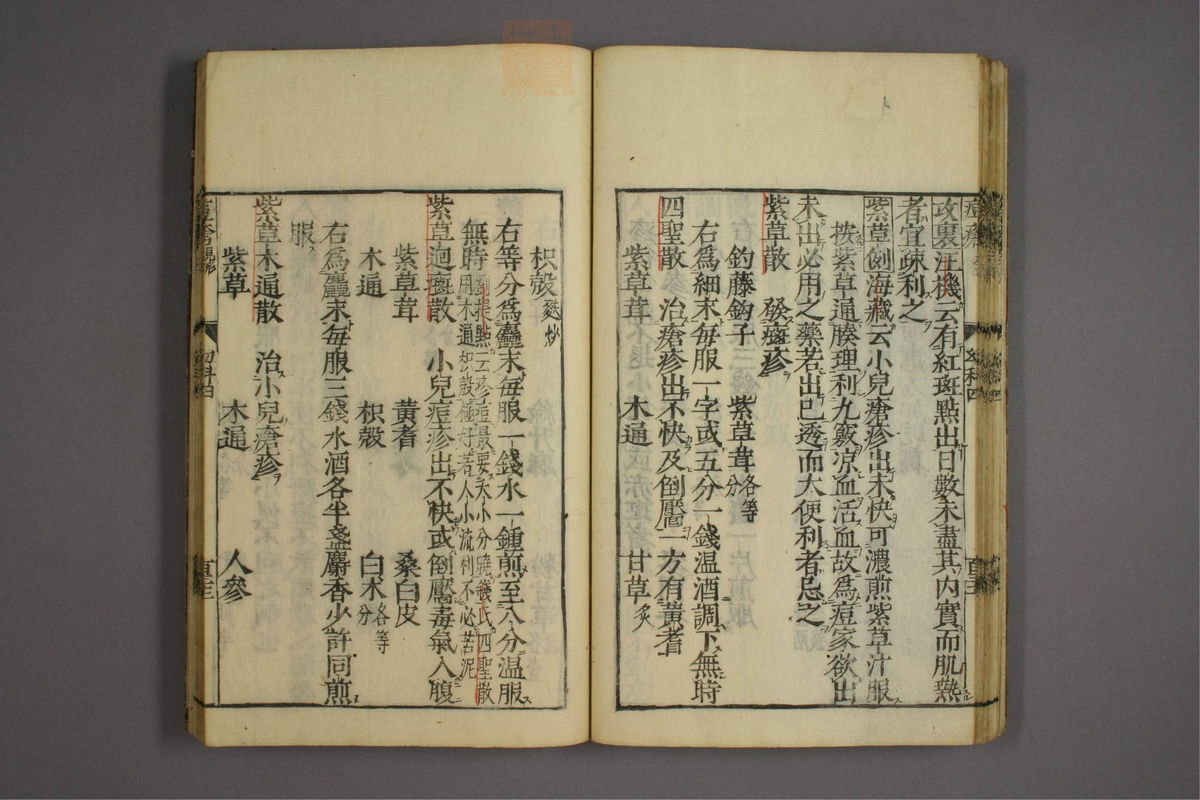 攻裏汪機云有紅斑點出日數未盡其内實而肌熱
者宜疎利之
紫草例海藏云小兒瘡疹出未快可濃煎紫草汁服
按紫草通腠理利九竅凉血活血故爲痘家欲出
未出必用之藥若出已透而大便利者忌之
紫草散　發瘢疹
釣藤鈎子　紫草茸各等分
右爲細末毎服一字或五分一錢温酒調下無時
四聖散　治瘡疹出不快及倒黶一方有黄耆
紫草茸　木通　甘草炙
枳殻麩炒
右等分爲麤末毎服一錢水一鍾煎至八分温服
無時劉提點云疹痘最要大小分曉錢氏四聖散
用木通枳殻極好若人小流利不必苦泥
紫草透斑散　小兒痘疹出不快或倒黶毒氣入腹
紫草茸　黄耆　桑白皮
木通　枳殻　白朮各等分
右爲麤末毎服三錢水酒各半盞麝香少許同煎
服
紫草木通散　治小兒瘡疹
紫草　木通　人參